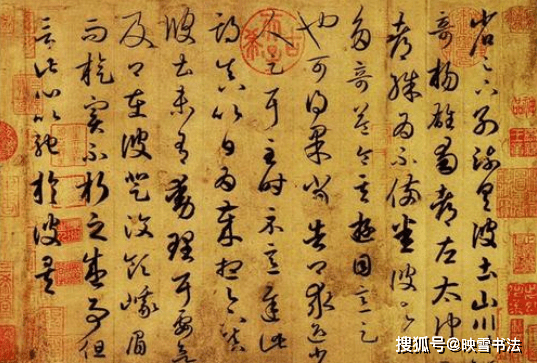 省足下别疏具彼土山川
奇楊雄蜀都左太沖
都殊為不備悉彼故
多奇益令其遊目意足
也可得果當告卿求迎少
人足耳至時示意遲此
期真以日為歲想足下鎮
彼土未有動理耳要欲
及卿在彼登汶領峨眉
而旋實不朽之盛事但
言此心以馳於彼矣
搜狐号@映雪书法